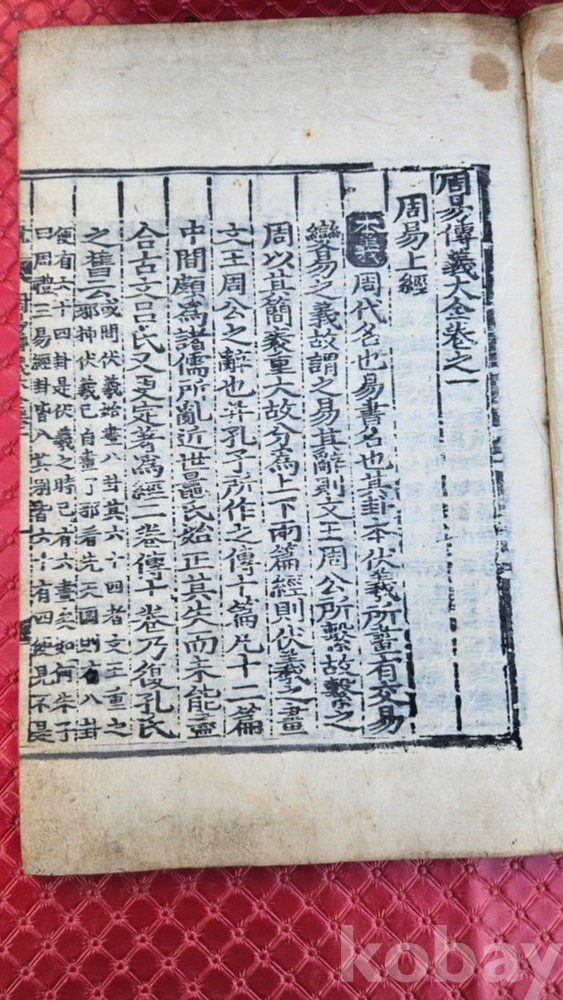 周易傳義大全卷之一
周易上經
本義 周代名也易書名也其卦本伏羲所畫有交易
變易之義故謂之易其辭則文王周公所繫故繫之
周以其簡袠重大故分爲上下兩篇經則伏羲之畫
文王周公之辭也并孔子所作之傳十篇凡十二篇
中間頗爲諸儒所亂近世晁氏始正其失而未能盡
合古文呂氏又更定著爲經二卷傳十卷乃復孔氏
之舊云 或問伏羲始畫八卦其六十四者文王重之
邪抑伏羲已自畫了邪看先天圖則有八卦
便有六十四卦是伏羲之時已有六畫矣如何朱子
曰周禮三易經卦皆八其別皆六十有四便見不是
kobay